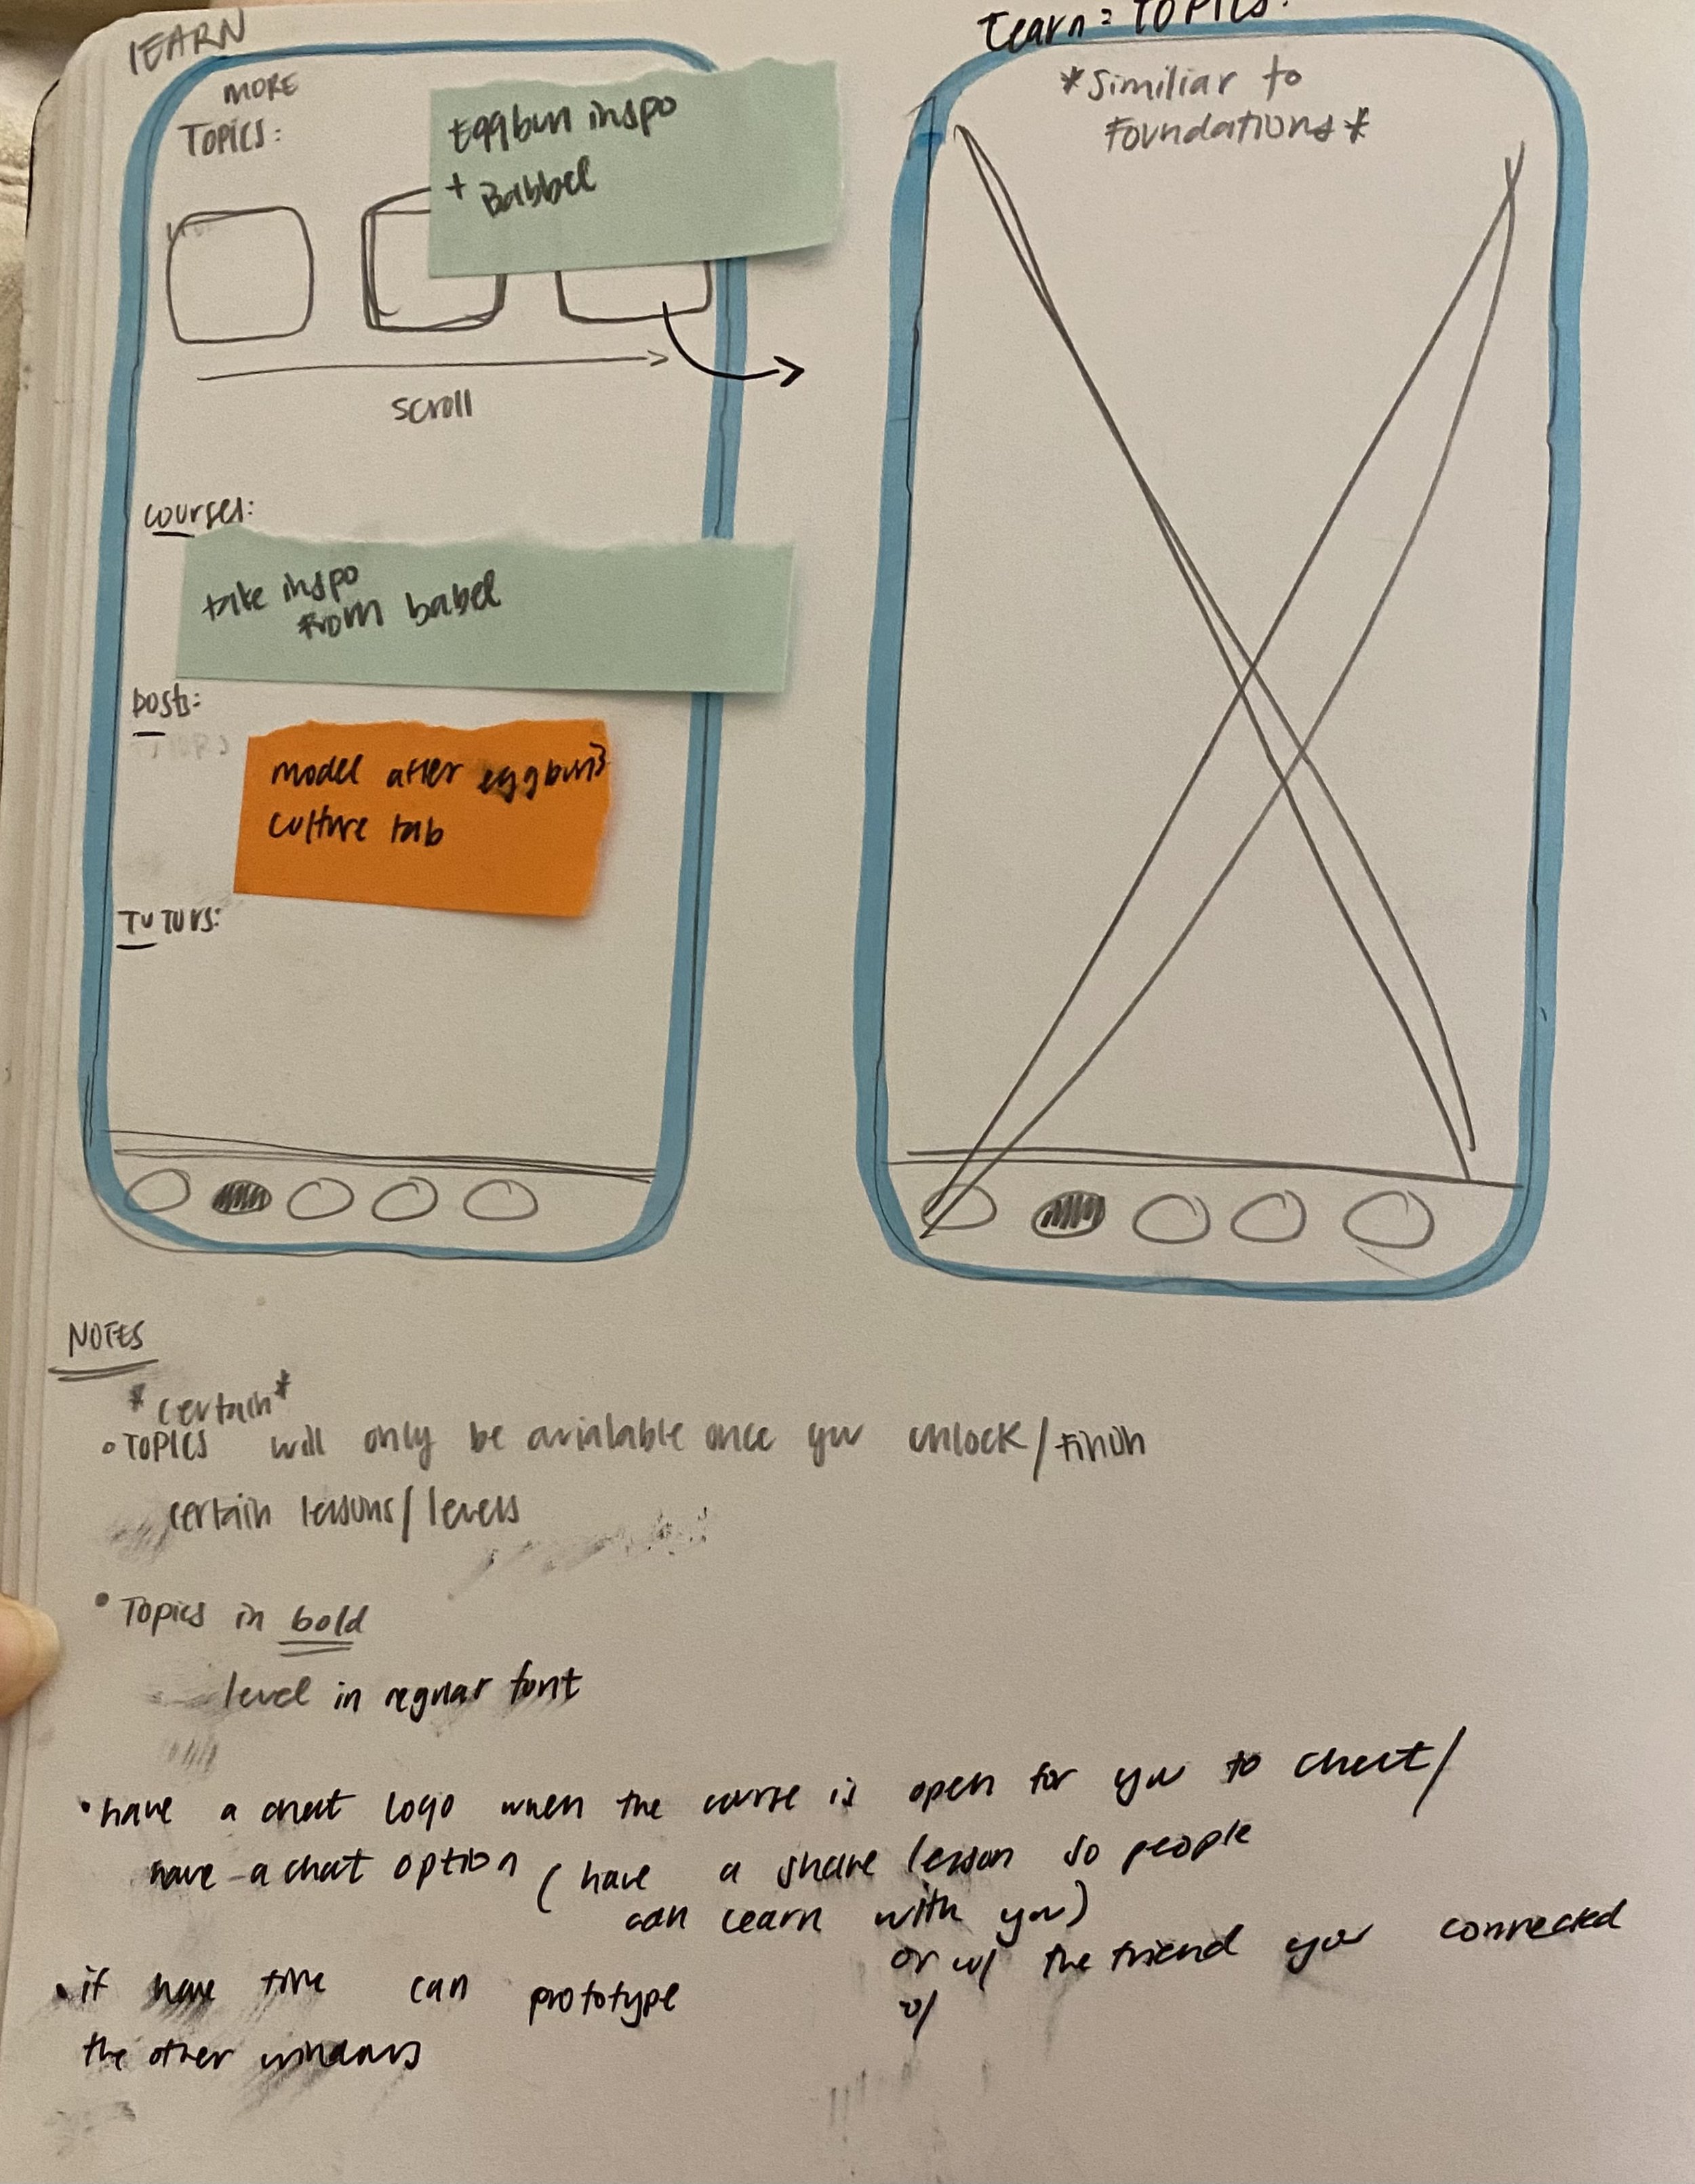 LEARN
MORE
TOPICS:
Eggbun inspo
+ Babbel
scroll
courses:
take inspo
from babel
posts:
model after eggbun's
culture tab
TUTORS:
Learn: TOPICS:
*Similiar to
Foundations*
NOTES
*certain*
TOPICS will only be avialable once you unlock/finish
certain lessons/levels
• Topics in bold
level in regular font
• have a chat logo when the course is open for you to chat/
have a chat option (have a share lesson so people
can learn with you)
or w/ the friend you connected
w/
• if have time can prototype
the other windows